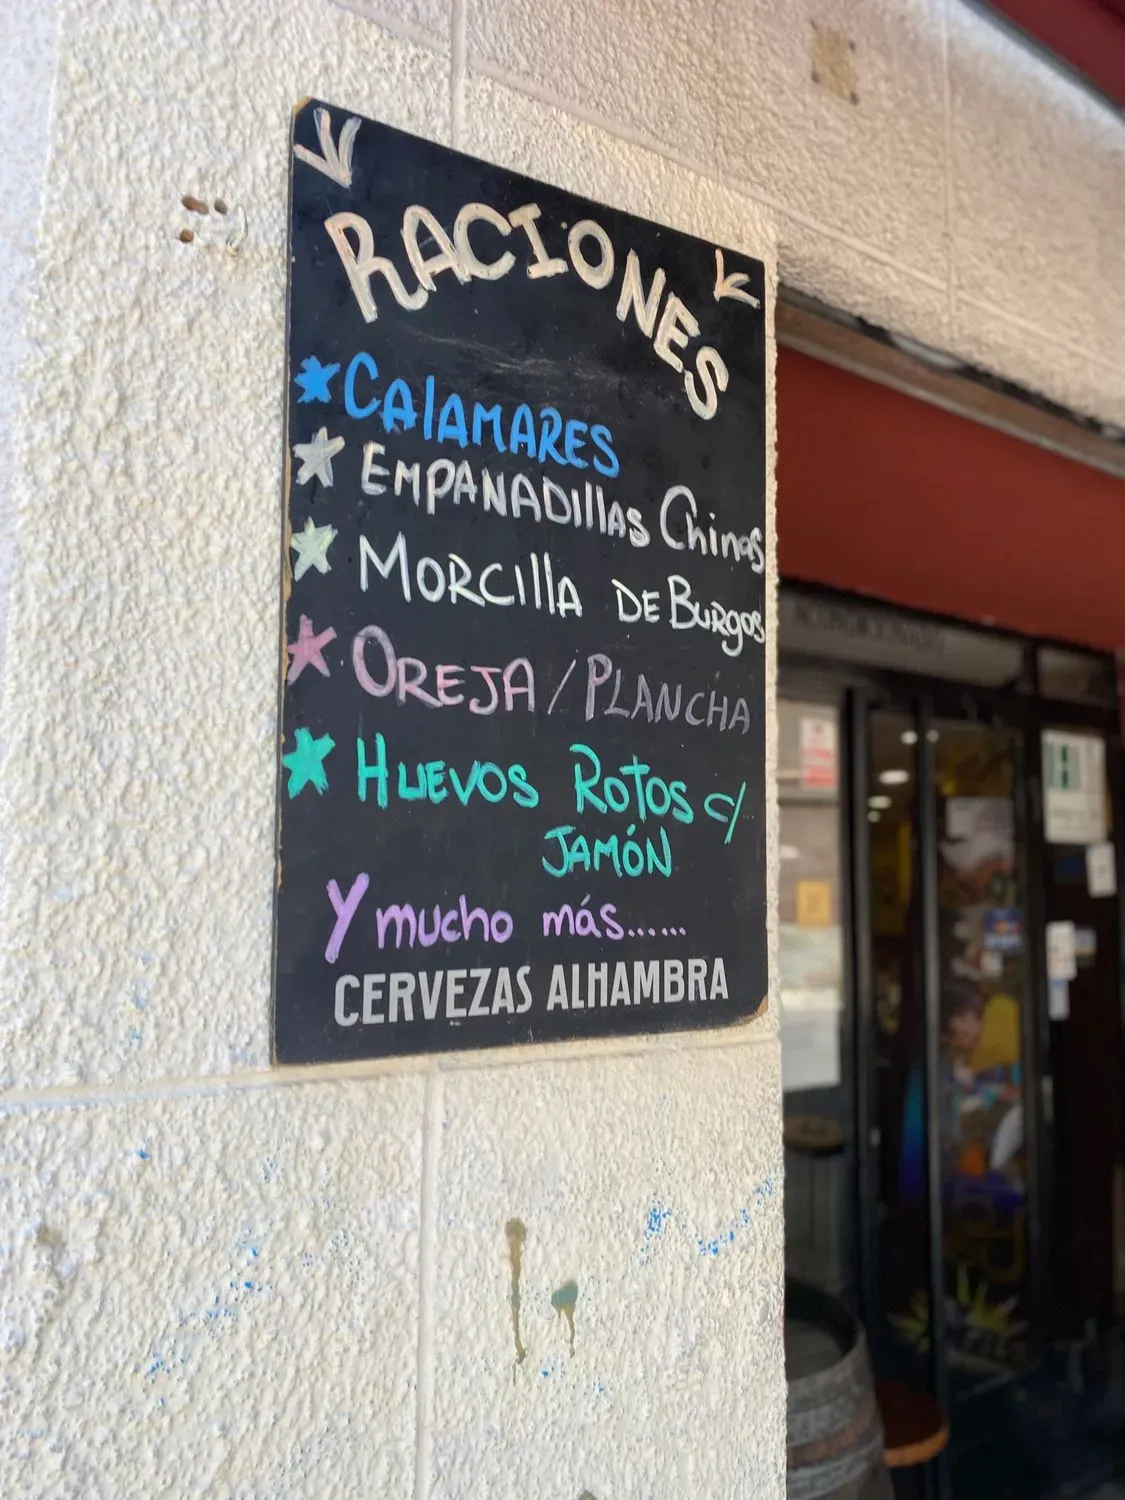 RACIONES
CALAMARES
EMPANADILLAS Chinas
MORCILLA DE BURGOS
OREJA / PLANCHA
HUEVOS ROTOS C/
JAMÓN
Y mucho más......
CERVEZAS ALHAMBRA
H